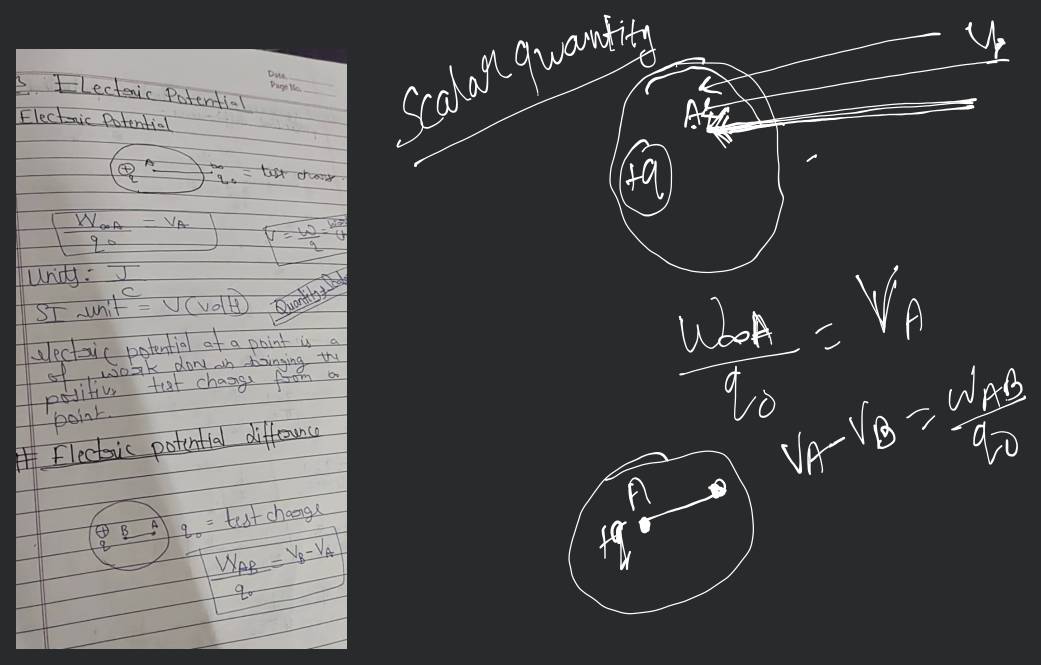 Date.
Page No.
3. Electric Potential
Electric Potential
⊕ q A ∞ q₀ = test charge.
W∞A / q₀ = VA
V = W / q =
Units: J / C
SI unit = V (volt)
Quantity
electric potential at a point is a
of work done in bringing the
positive test charge from a
point.
# Electric potential difference
⊕ q B A q₀ = test charge
WAB / q₀ = VB - VA
Scalar quantity
A
+q
W∞A / q₀ = VA
VA - VB = WAB / q₀
A
+q